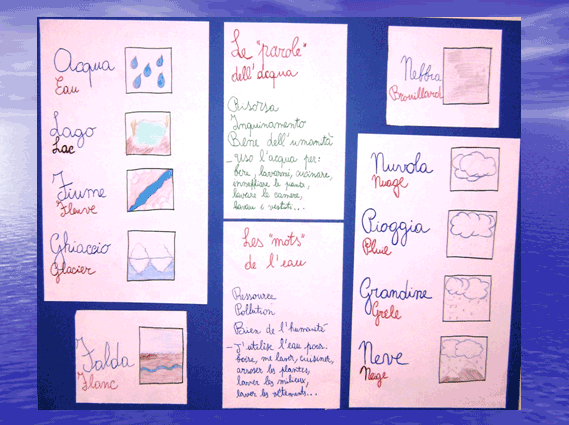 Acqua
Eau
Lago
Lac
Fiume
Fleuve
Ghiaccio
Glacier
Falda
Flanc
Le "parole"
dell'acqua
Risorsa
Inquinamento
Bene dell'umanità
- Uso l'acqua per:
bere, lavarmi, cucinare,
innaffiare le piante,
lavare le camere,
lavare i vestiti...
Les "mots"
de l'eau
Ressource
Pollution
Bien de l'humanité
- J'utilise l'eau pour
boire, me laver, cuisiner,
arroser les plantes,
laver les milieux,
laver les vêtements...
Nebbia
Brouillard
Nuvola
Nuage
Pioggia
Pluie
Grandine
Grele
Neve
Neige